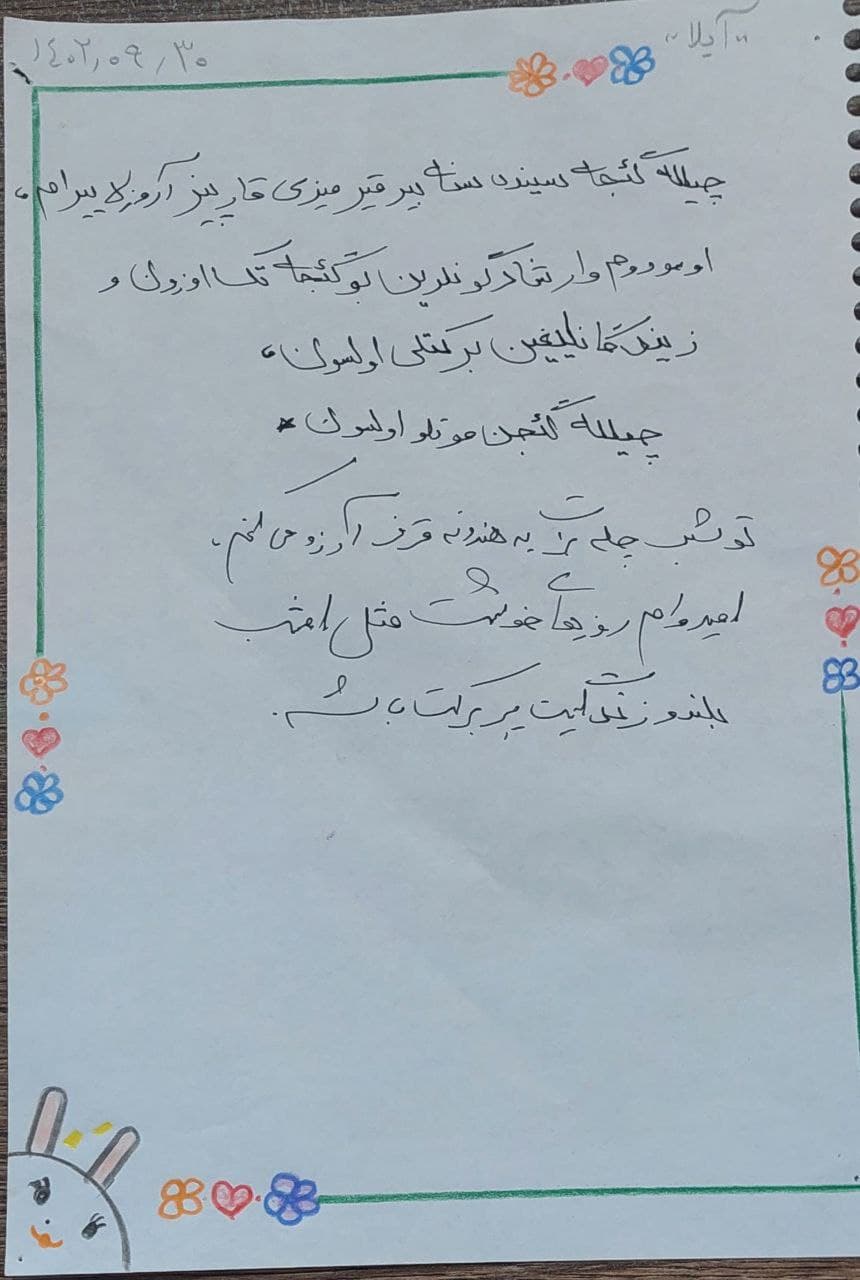 "آیلا"
۱۴۰۲,۰۹,۳۰
چیلله گئجه سینده سنه بیر قیرمیزی قارپیز آرزولاییرام،
اوموردوم وار شاد گونلرین بو گئجه تک اوزون و
زیندگانلیغین برکتلی اولسون،
چیلله گئجن موتلو اولسون*
تو شب چله برات یه هندونه قرمز آرزو می کنم.
امیدوارم روزهای خوشت مثل امشب
بلند و زندگیت پر برکت باشه.